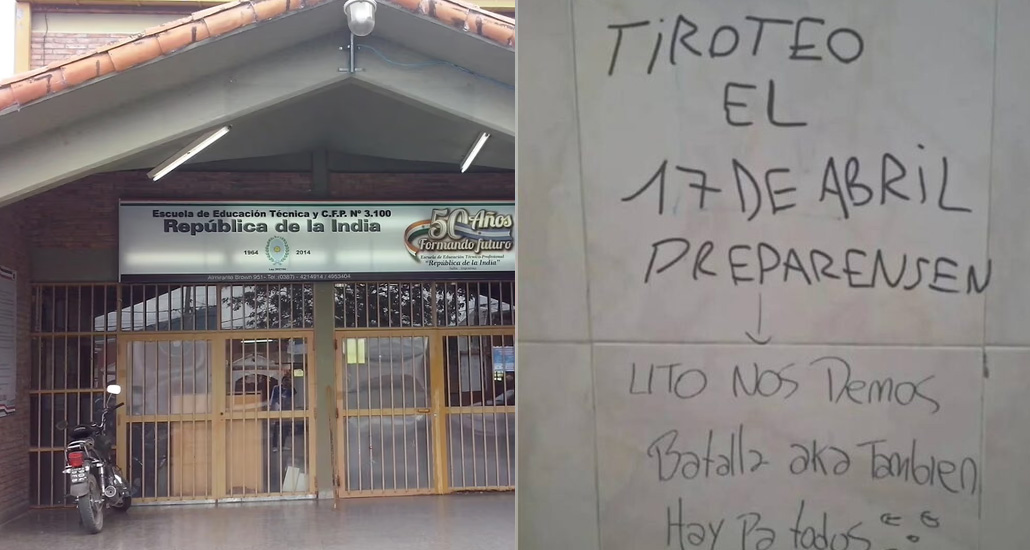 Escuela de Educación Técnica y C.F.P. Nº 3.100
República de la India
1964 2014
50 Años
Formando futuro
Escuela de Educación Técnico Profesional
"República de la India"
Almirante Brown 951- Tel: (0387) - 4214914 / 4953404
TiROTEO
EL
17 DE ABRiL
PREPARENSEN
LITO NOS Demos
Batalla aka Tambien
Hay Pa todos